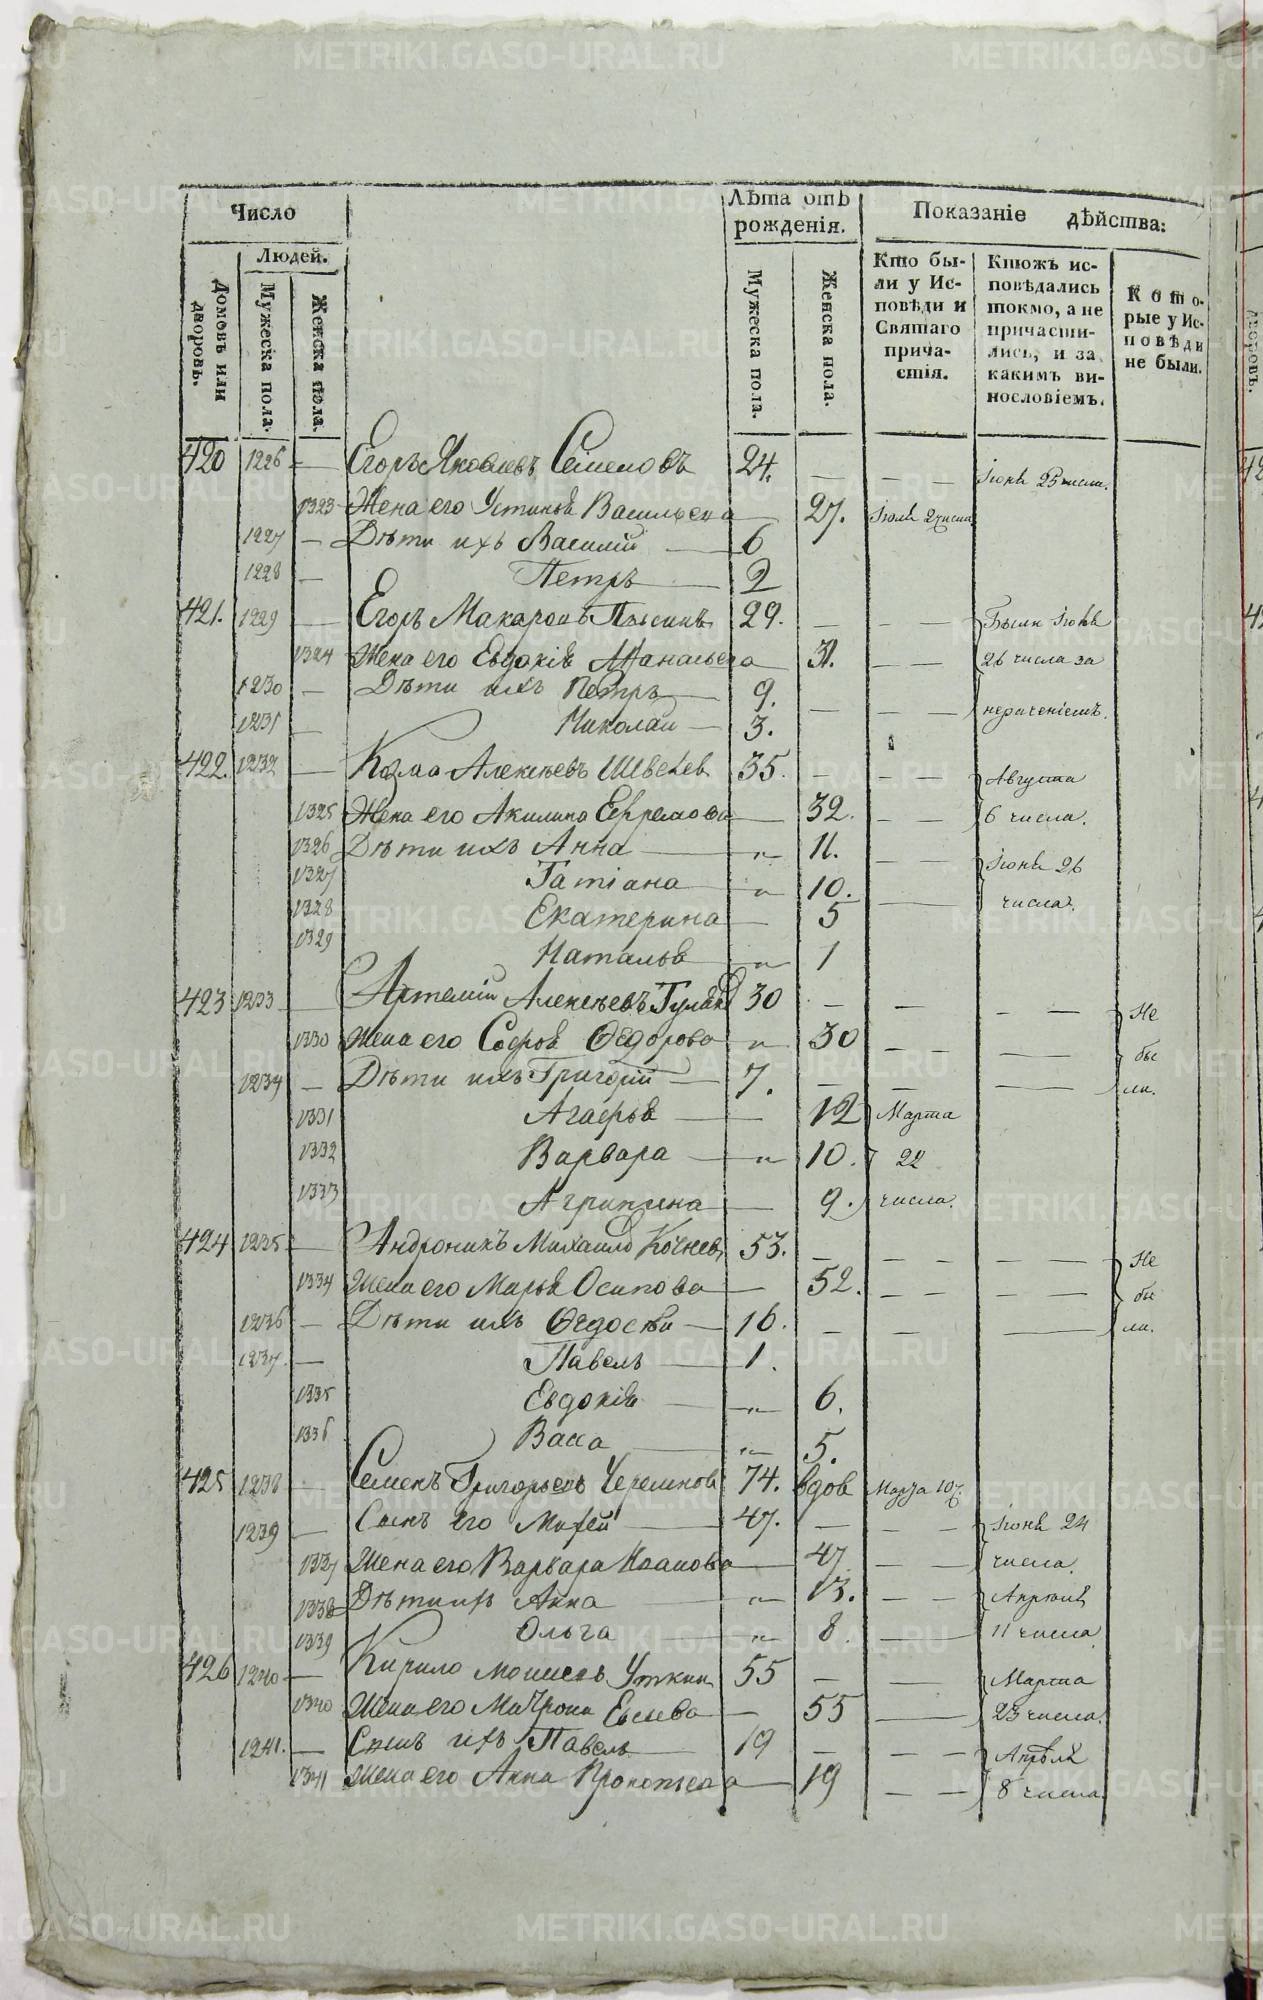 Число
Лѣта отъ рожденія.
Показаніе дѣйства:
Людей.
Домовъ или дворовъ.
Мужеска пола.
Женска пола.
Мужеска пола.
Женска пола.
Кто были у Исповѣди и Святаго причастія.
Ктожъ исповѣдались токмо, а не причастились, и за какимъ винословіемъ.
Которые у Исповѣди не были.
420 1226 — Егоръ Яковлевъ Семеновъ 24. — — — Іюня 25 числа.
1323 Жена его Устинья Васильева — 27. Іюля 2 числа
1227 — Дѣти ихъ Василій — 6
1228 — Петръ — 2
421. 1229 — Егоръ Макаровъ 29. — — — Были Іюня
1324 Жена его Евдокія Афанасьева 31. — — 26 числа за
1230 — Дѣти ихъ Петръ — 9.
1231 — Николай — 3. — — — нераченіемъ.
422. 1232 — Козма Алексѣевъ Шевелев 35. — — — Августа
1325 Жена его Акилина Ефремова — 32. — — 6 числа.
1326 Дѣти ихъ Анна — „ 11. — — Іюня 26
1327 Татіана — „ 10. — числа.
1328 Екатерина — 5
1329 Наталья — „ 1
423 1233 — Артемій Алексѣевъ 30 — — — — Не
1330 Жена его Софья Ѳедорова „ 30 — — — бы
1234 — Дѣти ихъ Григорій — 7. — — — ли.
1331 Агафья — 12 Марта
1332 Варвара — „ 10. 22
1333 Агрипина — 9. числа.
424 1235 — Андроникъ Михаило Кочнев 53. — — — — Не
1334 Жена его Марья Осипова — 52. — — — — бы
1236 — Дѣти ихъ Ѳедосѣй — 16. — — — ли.
1237. — Павелъ — 1.
1335 Евдокія — „ 6.
1336 Васса — „ 5.
425 1238 — Семенъ Григорьевъ 74. вдов Марта 10
1239 — Сынъ его Матфей — 47. — — — Іюня 24
1337 Жена его Варвара Иванова — 47 — — числа.
1338 Дѣти ихъ Анна — „ 13. — — Апрѣля
1339 Ольга — „ 8. — 11 числа
426 1240 — Кирило Моисеевъ Уткин 55 — — — Марта
1340 Жена его Матрона Евсеева — 55 — 23 числа.
1241. — Сынъ ихъ Павелъ — 19 — — — Апрѣля
1341 Жена его Анна Прокопьева — 19 — — 8 числа.
METRIKI.GASO-URAL.RU